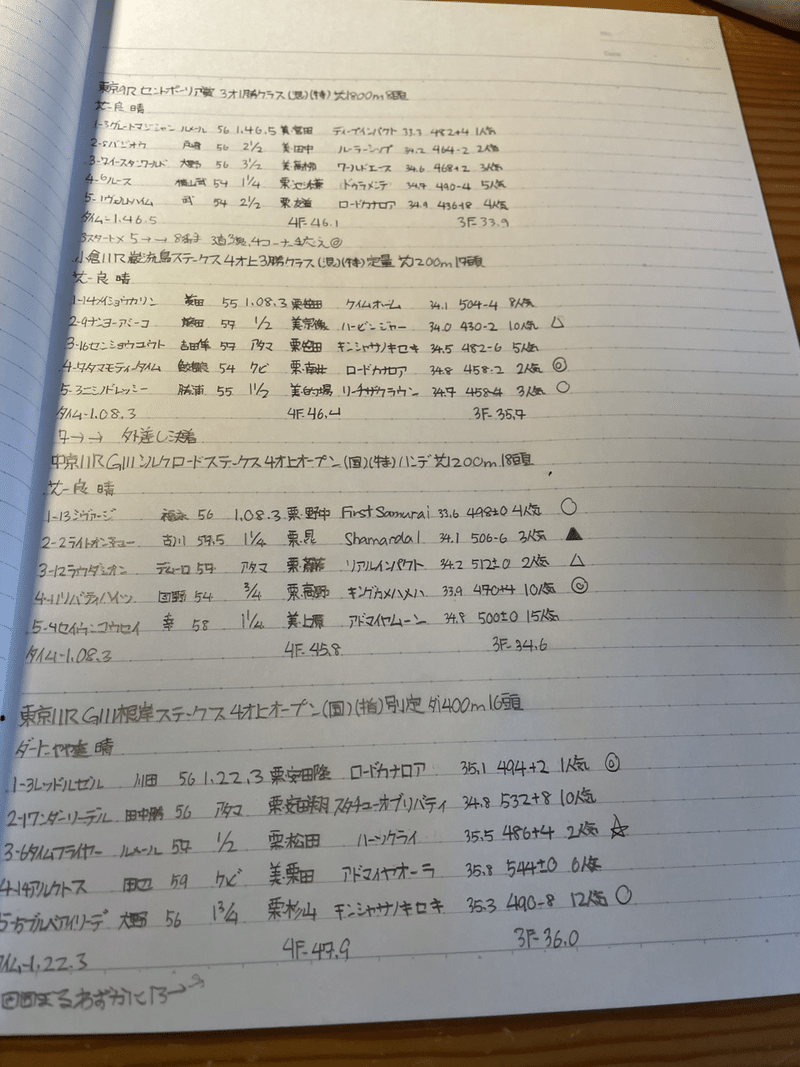 No.
Date
東京9R セントポーリア賞 3才1勝クラス(混)(特) 芝1800m 8頭
芝-良 晴
1-3グレートマジシャン ルメール 56 1.46.5 美・宮田 ディープインパクト 33.3 482+4 1人気
2-5バジオウ 戸崎 56 2½ 美・田中 ルーラーシップ 34.2 464-2 2人気
3-7イースタンワールド 大野 56 3½ 美・高柳 ワールドエース 34.6 468+2 3人気
4-6ルース 横山武 54 1¼ 栗・池添兼 ドゥラメンテ 34.7 490-4 5人気
5-1ヴェルトハイム 武 54 2½ 栗・友道 ロードカナロア 34.9 436+8 4人気
タイム-1.46.5 4F-46.1 3F-33.9
3スタート× 5→→ 4コーナー
小倉11R 巌流島ステークス 4才上3勝クラス(混)(特)定量 芝1200m 17頭
芝-良 晴
1-14メイショウカリン 55 1.08.3 ケイムホーム 34.1 504-4 8人気
2-9ナンヨーアミーコ 57 ½ 美・宗像 ハービンジャー 34.0 430-2 10人気 △
3-16センショウユウト 吉田隼 57 アタマ キンシャサノキセキ 34.5 482-6 5人気
4-7タマモティータイム 鮫島良 54 クビ 栗・南井 ロードカナロア 34.8 458-2 2人気 ◎
5-3ニシノドレッシー 勝浦 55 1½ 美・的場 リーチザクラウン 34.7 458-4 3人気 ○
タイム-1.08.3 4F-46.4 3F-35.7
7→→ 外差し決着
中京11R GIII シルクロードステークス 4才上オープン(国)(特)ハンデ 芝1200m 18頭
芝-良 晴
1-13シヴァージ 福永 56 1.08.3 栗・野中 First Samurai 33.6 498±0 4人気 ○
2-2ライトオンキュー 古川 57.5 1¼ 栗・昆 Shamardal 34.1 506-6 3人気 ▲
3-12ラウダシオン デムーロ 57 アタマ 栗・斎藤 リアルインパクト 34.2 512±0 2人気 △
4-11リバティハイツ 団野 54 ¾ 栗・高野 キングカメハメハ 33.9 470+4 10人気 ◎
5-4セイウンコウセイ 幸 58 1¼ 美・上原 アドマイヤムーン 34.8 500±0 15人気
タイム-1.08.3 4F-45.8 3F-34.6
東京11R GIII 根岸ステークス 4才上オープン(国)(指)別定 ダ1400m 16頭
ダート-やや重 晴
1-3レッドルゼル 川田 56 1.22.3 栗・安田隆 ロードカナロア 35.1 494+2 1人気 ◎
2-1ワンダーリーデル 田中勝 56 アタマ 栗・安田翔 スタチューオブリバティ 34.8 532+8 10人気
3-6タイムフライヤー ルメール 57 ½ 栗・松田 ハーツクライ 35.5 486+4 2人気 ☆
4-14アルクトス 田辺 59 クビ 美・栗田 アドマイヤオーラ 35.8 544±0 6人気
5-5ブルベアイリーデ 大野 56 1¾ 栗・杉山 キンシャサノキセキ 35.3 490-8 12人気 ○
タイム-1.22.3 4F-47.9 3F-36.0
わずかに13→→